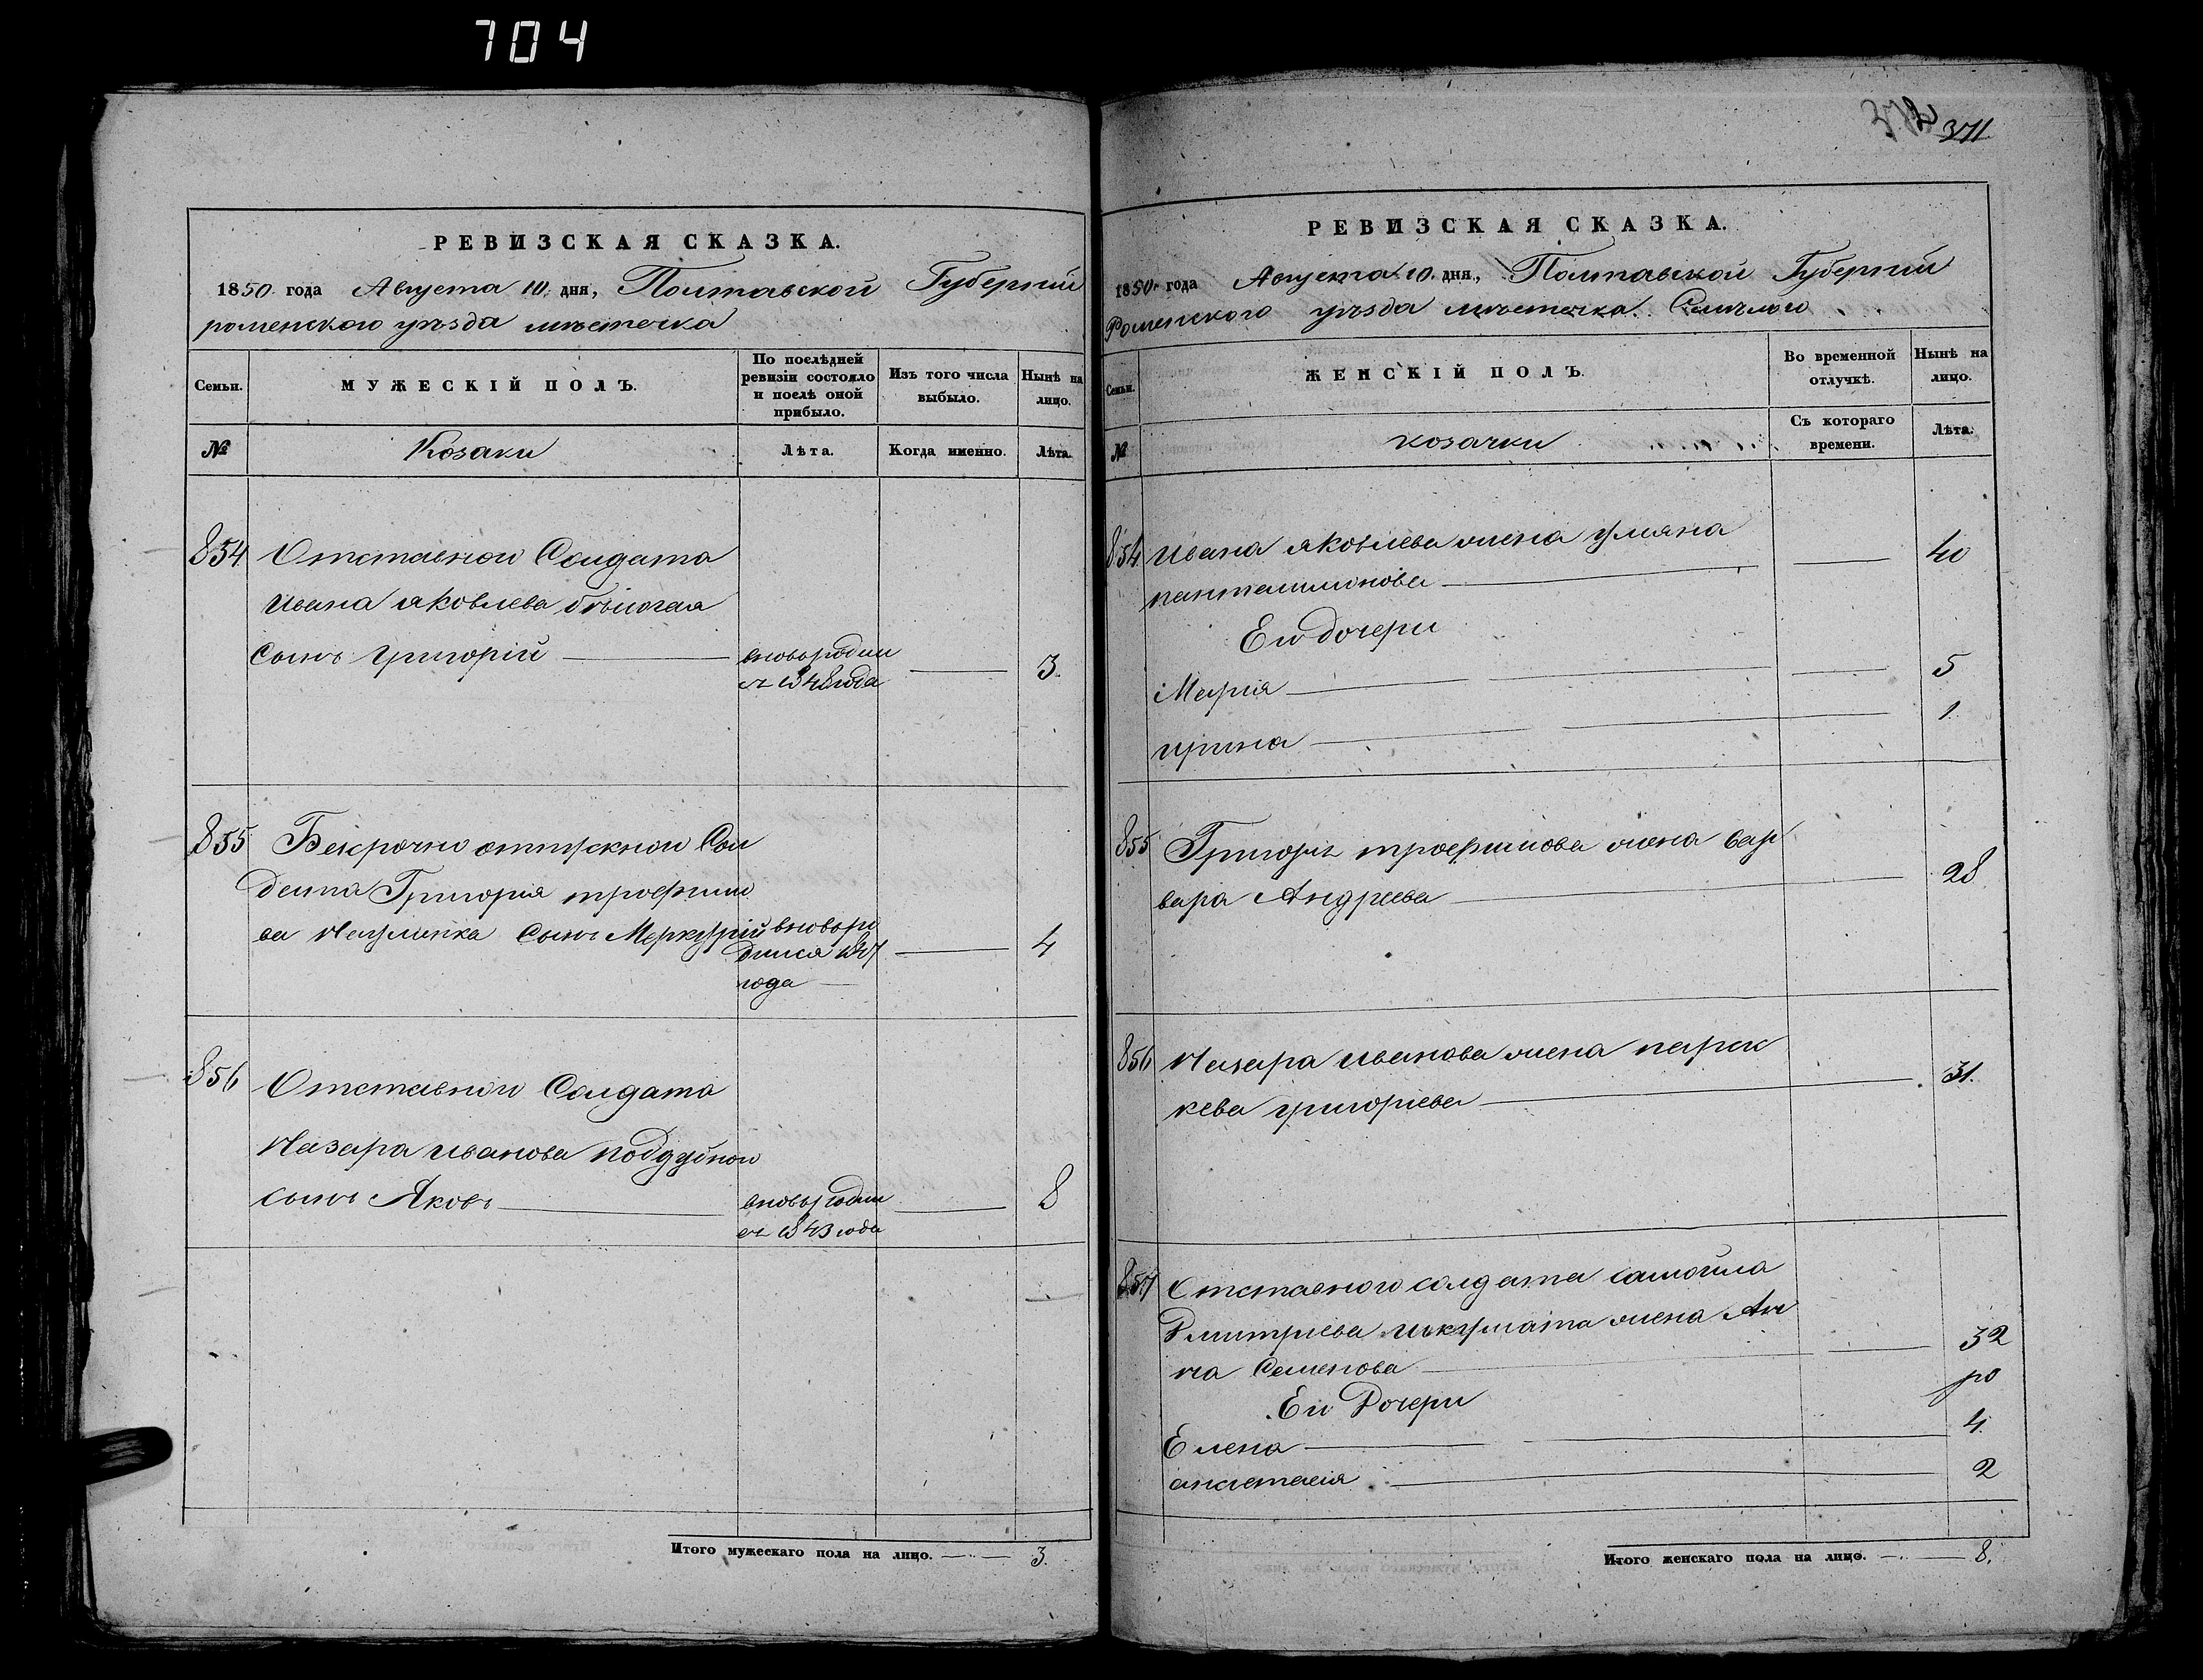 704
371
РЕВИЗСКАЯ СКАЗКА.
1850 года Августа 10. дня, Полтавской Губерний
роменского уѣзда мѣстечка
Семьи.
МУЖЕСКІЙ ПОЛЪ.
По послѣдней ревизіи состояло и послѣ оной прибыло.
Изъ того числа выбыло.
Нынѣ на лицо.
№
Козаки
Лѣта.
Когда именно.
Лѣта.
854 Отставнои Солдата
Ивана яковлева
Сынъ Григорій вновьродил 3.
ся 1848 года
855 Безсрочно отпускнои Сол
дата Григория трофимо
ва Сынъ Меркурій вновьро 4
дился 1847
года
856 Отставнои Солдата
Назара иванова поддубнои
сынъ Яковъ вновьродил 8
ся 1843 года
Итого мужескаго пола на лицо. 3.
РЕВИЗСКАЯ СКАЗКА.
1850 года Августа 10. дня, Полтавской Губерний
Роменского уѣзда мѣстечка Смѣлого
Семьи.
ЖЕНСКІЙ ПОЛЪ.
Во временной отлучкѣ.
Нынѣ на лицо.
№
козачки
Съ котораго времени.
Лѣта.
854 Ивана яковлева жена улияна 40
пантелимонова
Ей дочери
Мария 5
ирина 1.
855 Григория трофимова жена вар
вара Андреева 28
856 Назара иванова жена парас
кева григориева 31.
857 Отставного солдата самойла
Дмитриева жена Ан
на Семенова 32
Ей Дочери
Елена 4.
анастасия 2
Итого женскаго пола на лицо. 8.